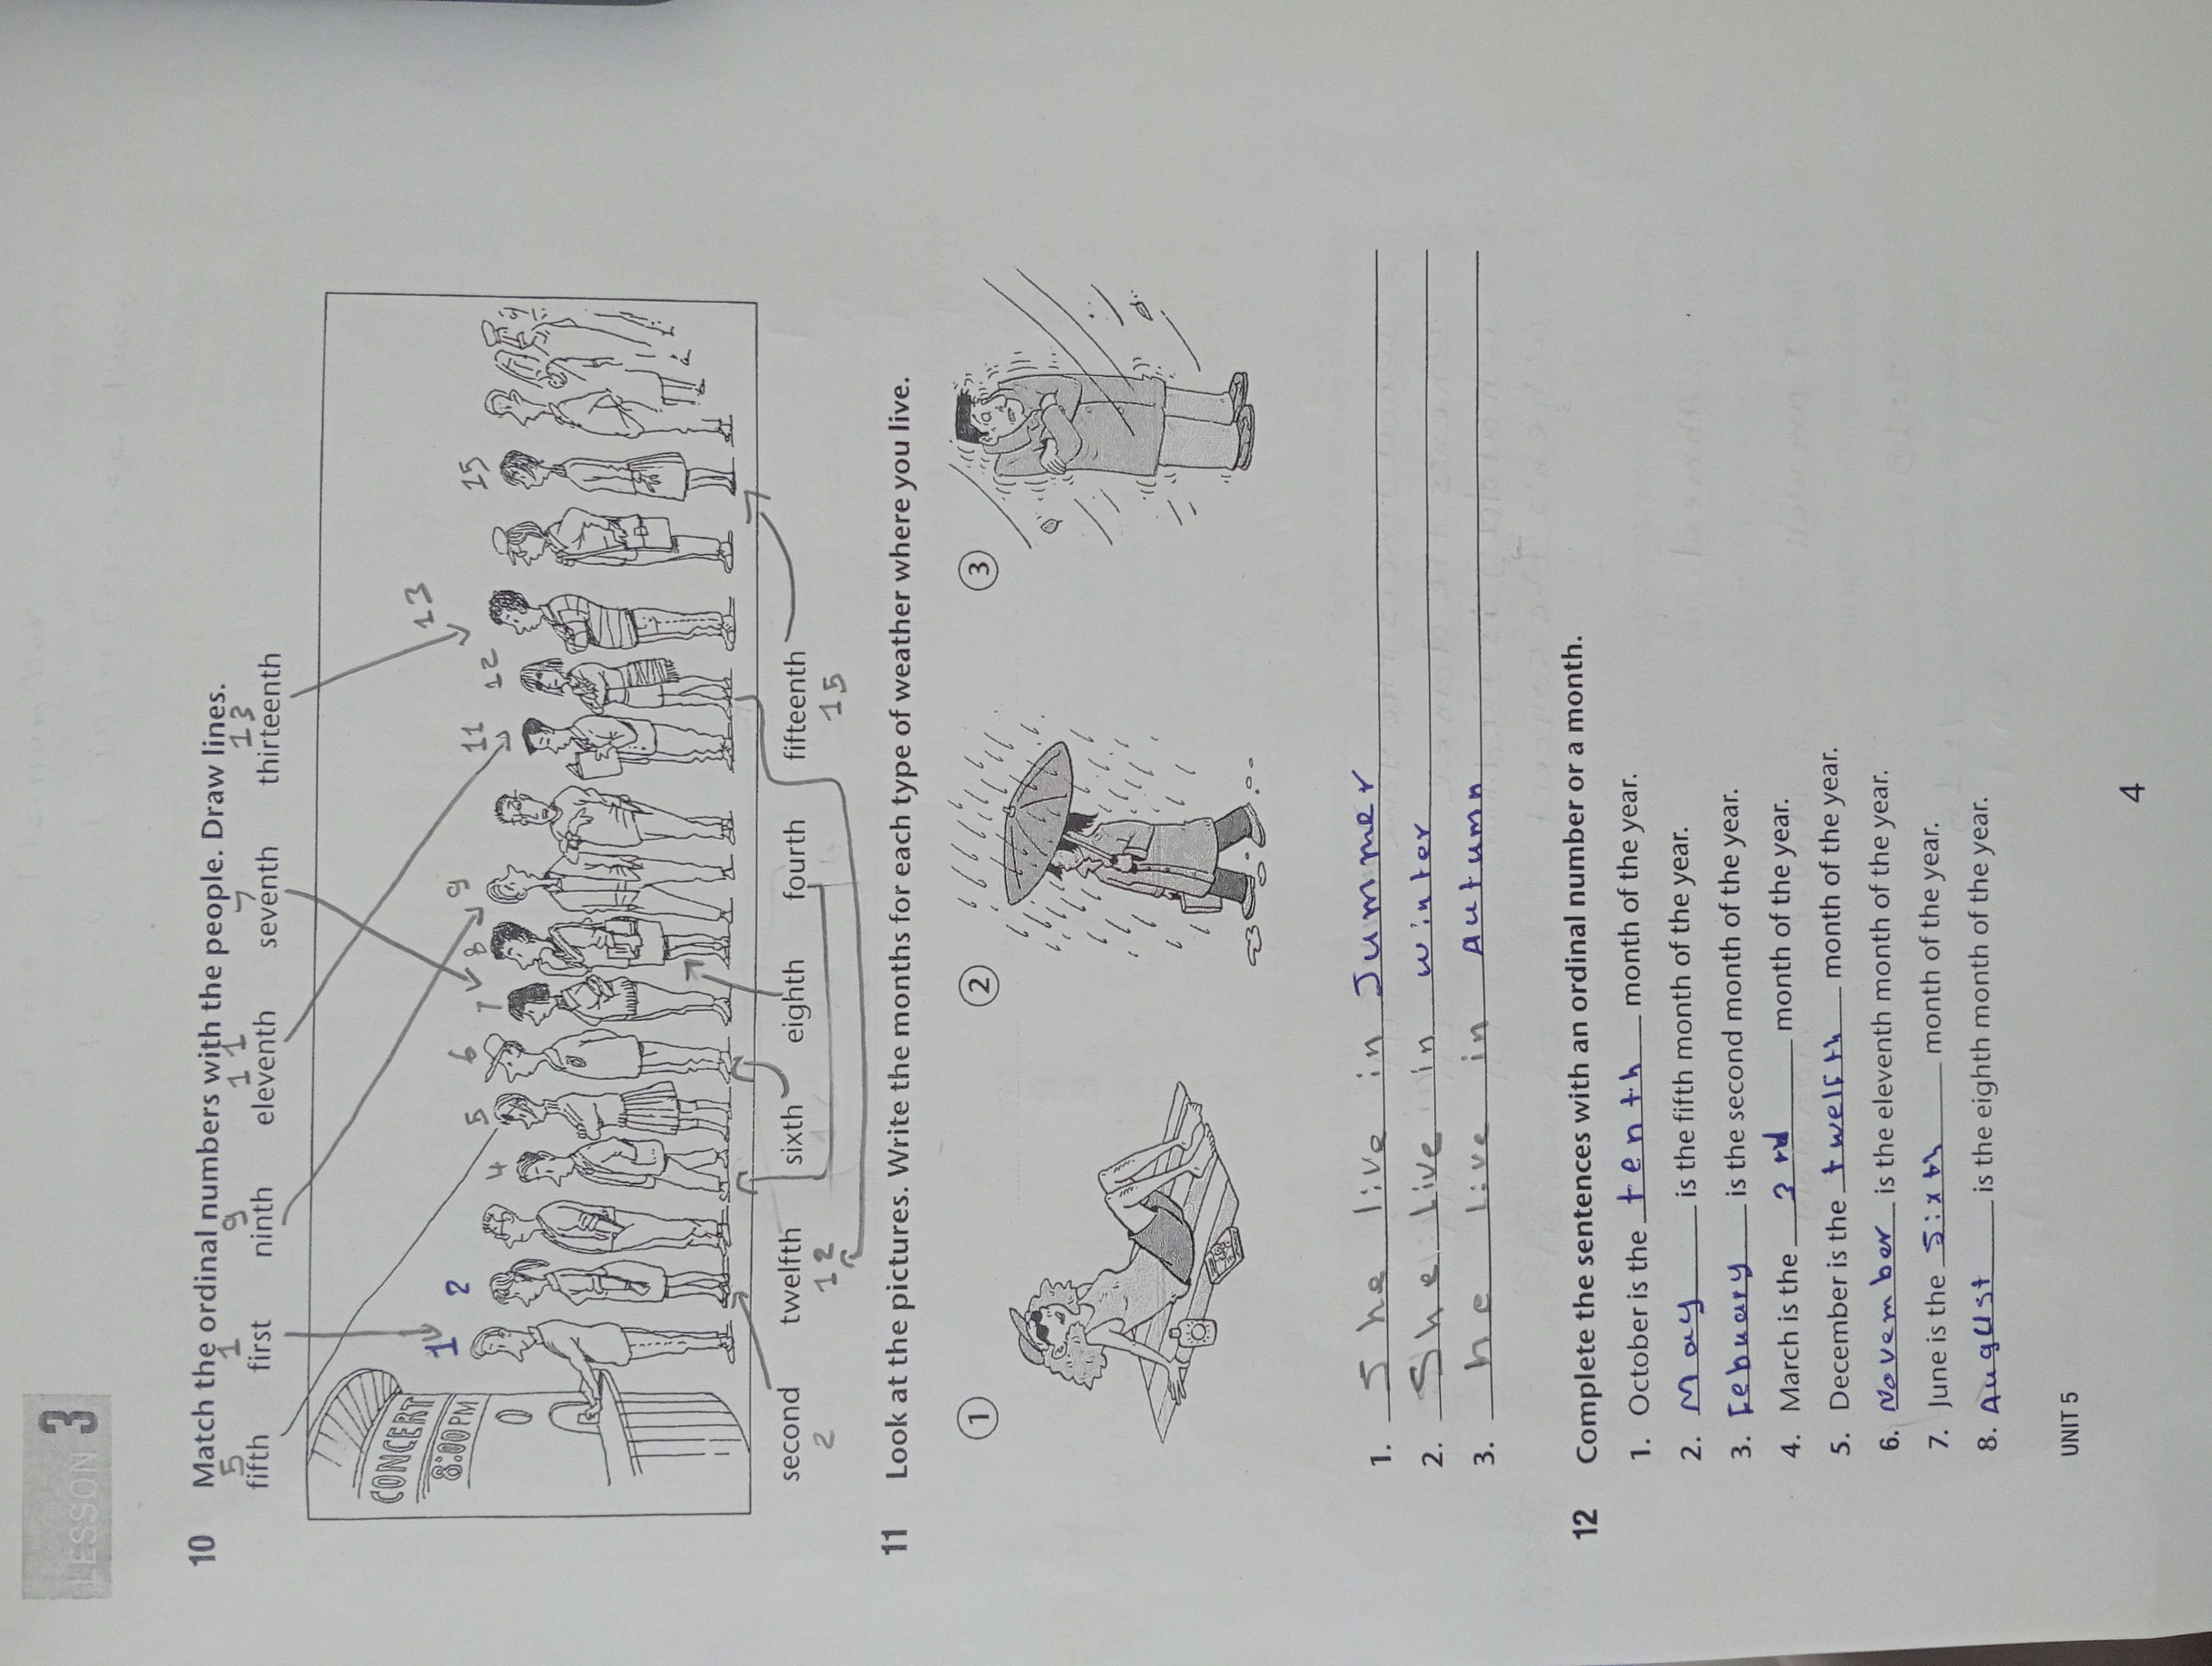 LESSON 3
10 Match the ordinal numbers with the people. Draw lines.
5 1 9 11 7 13
fifth first ninth eleventh seventh thirteenth
CONCERT
8:00 PM
1 2 4 5 6 7 8 9 11 12 13 15
second twelfth sixth eighth fourth fifteenth
2 12 15
11 Look at the pictures. Write the months for each type of weather where you live.
1 2 3
1. She live in Summer
2. She live in winter
3. he live in Autumn
12 Complete the sentences with an ordinal number or a month.
1. October is the tenth month of the year.
2. May is the fifth month of the year.
3. Febuary is the second month of the year.
4. March is the 3rd month of the year.
5. December is the twelfth month of the year.
6. November is the eleventh month of the year.
7. June is the sixth month of the year.
8. August is the eighth month of the year.
UNIT 5
4